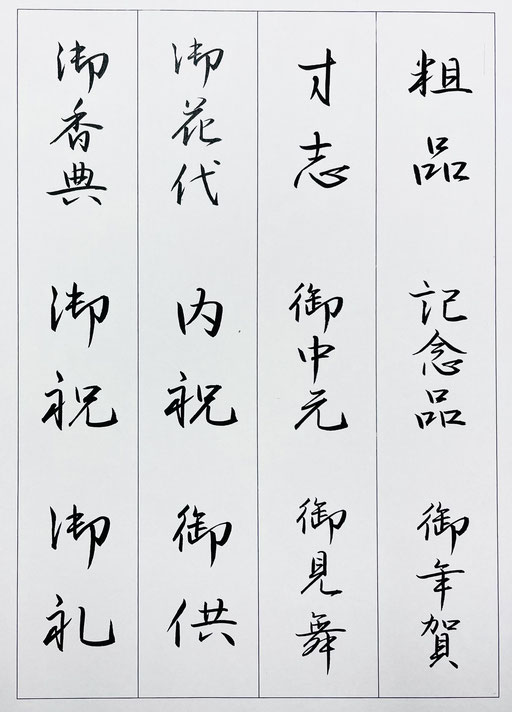 粗品
記念品
御年賀
寸志
御中元
御見舞
御花代
内祝
御供
御香典
御祝
御礼